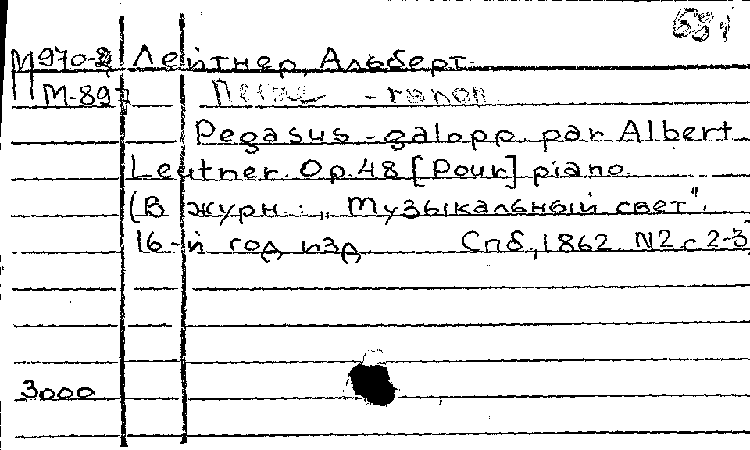 М970-2 Лейтнер, Альберт.
М-897 -галоп
Pegasus-galopp par Albert
Leutner. Op. 48 [Pour] piano.
(В журн.: „Музыкальный свет".
16-й год изд Спб, 1862 N2 с 2-3
3000